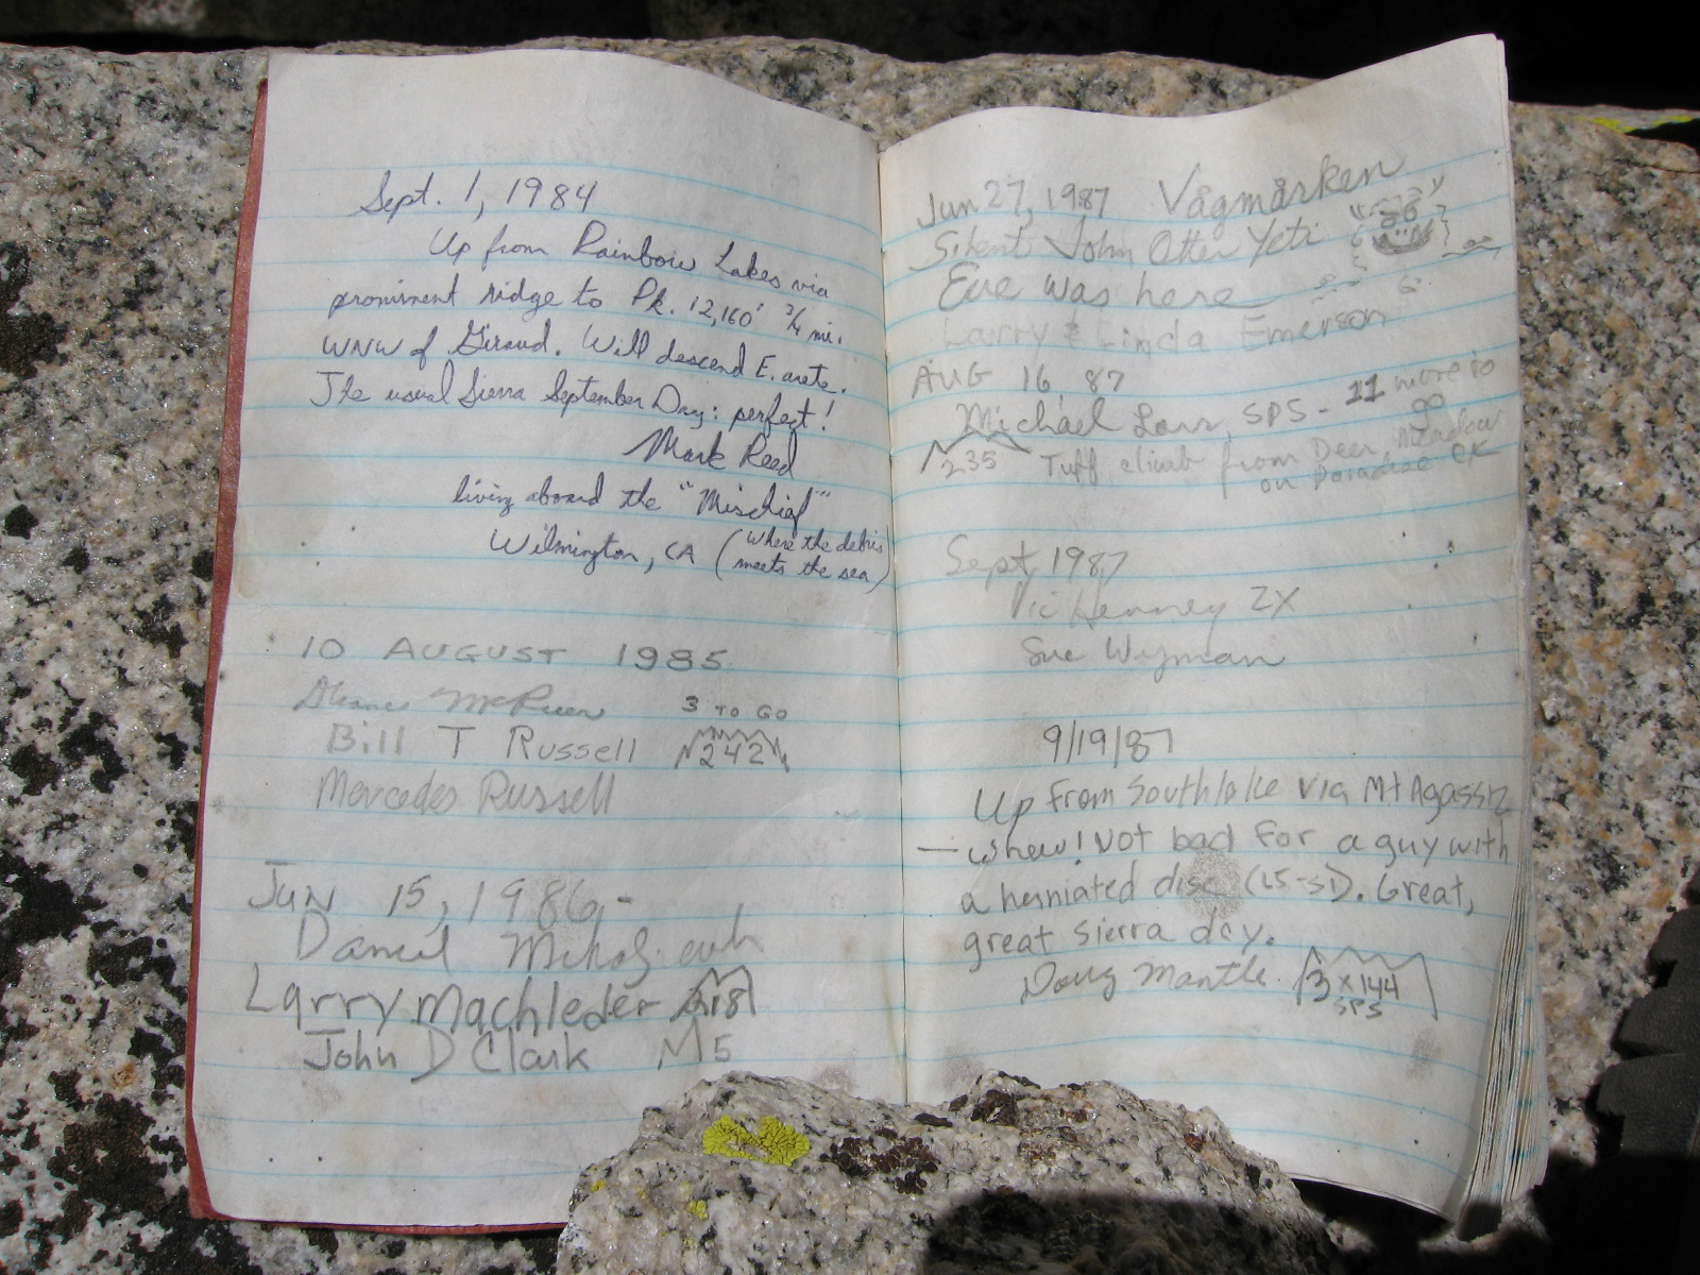 Sept. 1, 1984
Up from Rainbow Lakes via
prominent ridge to Pk. 12,160' 3/4 mi.
WNW of Giraud. Will descend E. arete.
The usual Sierra September Day: perfect!
Mark Reed
living aboard the "Mischief"
Wilmington, CA (where the debris
meets the sea)
10 AUGUST 1985
3 TO GO
Bill T Russell 242
Mercedes Russell
Jun 15, 1986-
Daniel
Larry Machleder 218
John D Clark 5
Jun 27, 1987 Vågmårken
Silent John Otter Yeti
Eve was here
Larry & Linda Emerson
AUG 16, 87
Michael Lorr, SPS - 11 more to
go
235 Tuff climb from Deer Meadow
on Paradise CK
Sept, 1987
Vic Henney 2X
Sue Wyman
9/19/87
Up From Southlake via Mt Agassiz
— whew! Not bad for a guy with
a herniated disc (L5-S1). Great,
great Sierra day.
Doug Mantle 3x144
SPS